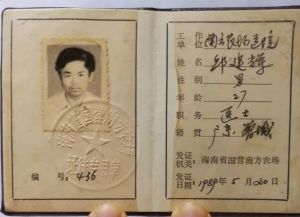 工作
单位 南方农场医院
姓名 邱建辉
性别 男
年龄 27
职务 医士
籍贯 广东
发证
机关： 海南省国营南方农场
发证
日期 1989 年 5 月 20 日
编 号： 436